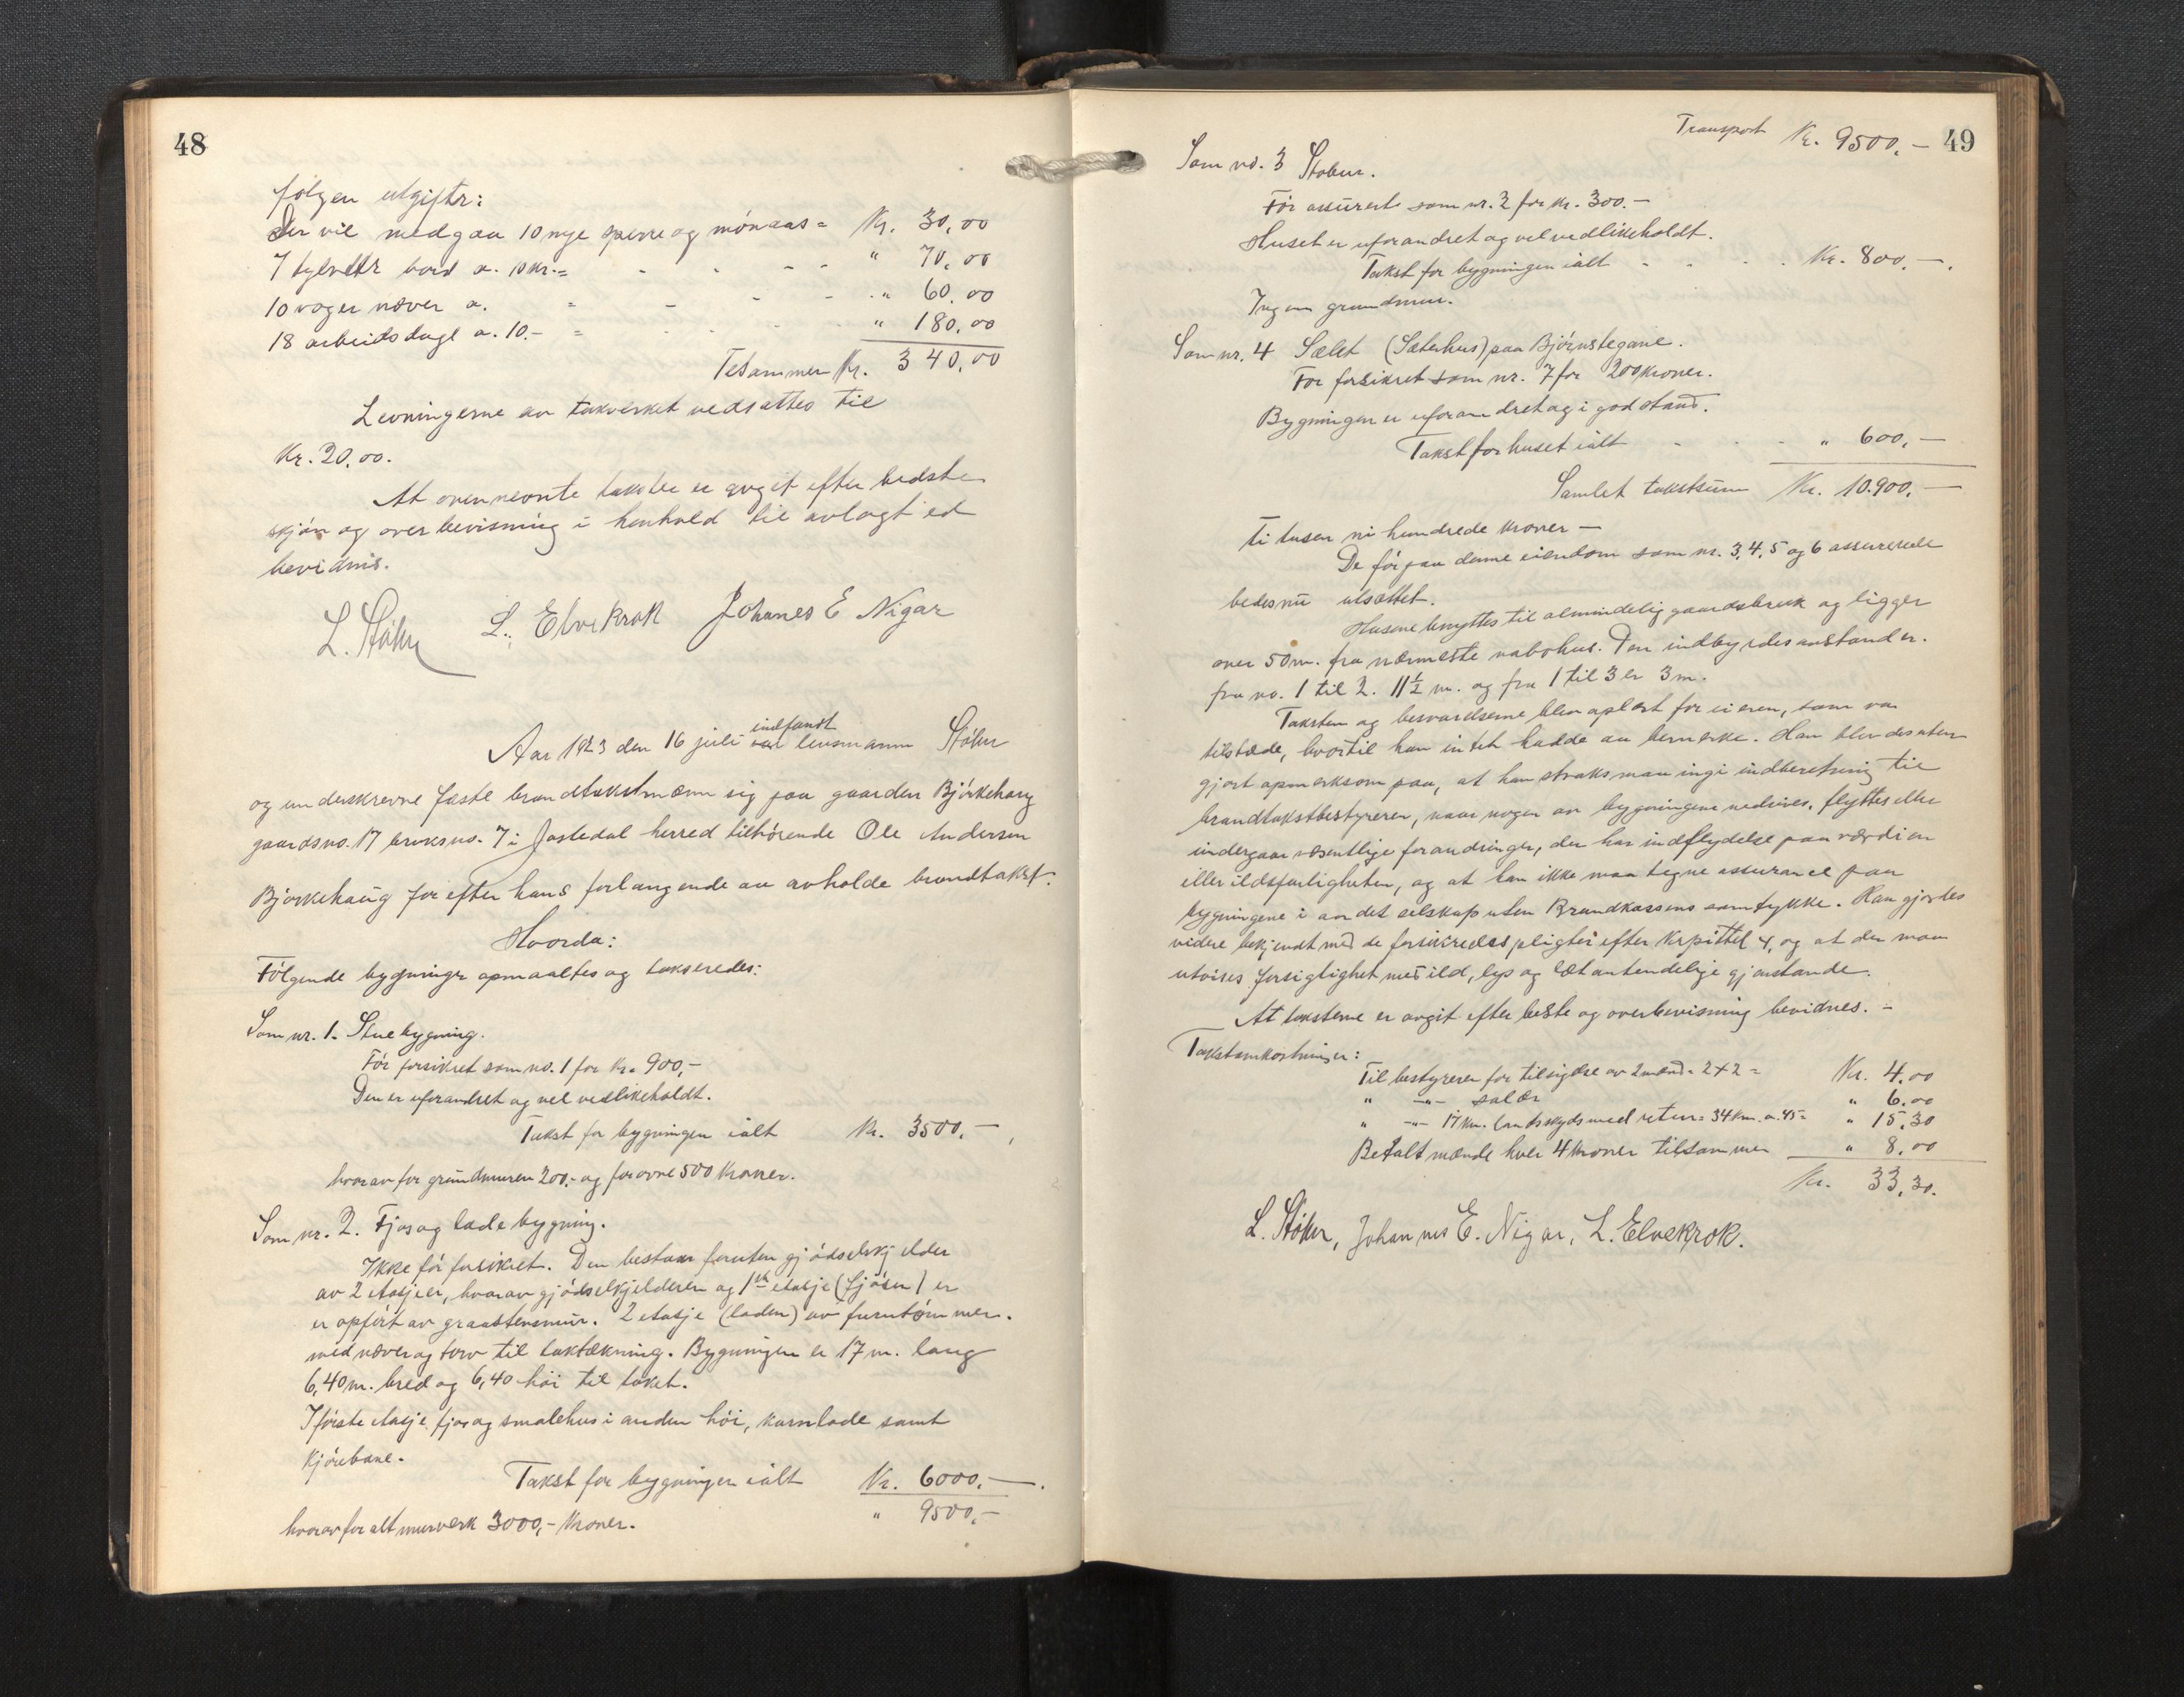 48
følgen utgifter:
Der vil medgaa 10 nye sperre og mønsaas = Kr. 30,00
7 tylvter bord a. 10 kr. = - - - - " 70,00
10 voger næver a. = - - - - " 60,00
18 arbeidsdage a. 10.- = - - - " 180,00
Tilsammen Kr. 340,00
Levningerne av takverket verdsattes til
Kr. 20,00.
At ovennevnte takster er avgit efter bedste
skjøn og overbevisning i henhold til avlagt ed
bevidnes.
L. Støhr L. Elvekrok Johanes E Nigar
indfandt
Aar 1923 den 16 juli var lensmann Støhr
og underskrevne faste brandtakstmænn sig paa gaarden Bjørkehaug
gaardsno. 17 bruksno. 7 i Jostedal herred tilhørende Ole Andersen
Bjørkehaug for efter hans forlangende aa avholde brandtakst.
Hvorda:
Følgende bygninger opmaaltes og takseredes:
Som nr. 1. Stuebygning.
Før forsikret som no. 1 for Kr. 900,-
Den er uforandret og vel vedlikeholdt.
Takst for bygningen ialt Kr. 3500,-,
hvorav for grundmuren 200,- og for ovne 500 Kroner.
Som nr. 2. Fjos og ladebygning.
Ikke før forsikret. Den bestaar foruten gjødselkjelder
av 2 etasjer, hvorav gjødselkjelderen og 1ste etasje (fjøsen) er
er opført av graastensmur. 2 etasje (laden) av furutømmer.
med næver og torv til taktækning. Bygningen er 17 m. lang
6,40 m. bred og 6,40 høi til taket.
I første etasje fjos og smalehus i anden høi, kornlade samt
Kjørebane.
Takst for bygningen ialt Kr. 6000,-.
" 9500,-
hvorav for alt murverk 3000,- Kroner.
Transport Kr. 9500,- 49
Som no. 3 Stabur.
Før assurert som nr. 2 for kr. 300.-
Huset er uforandret og vel vedlikeholdt.
Takst for bygningen ialt - - - Kr. 800,-.
Ingen grundmur.
Som nr. 4 Sælet (Sæterhus) paa Bjørnstegane.
Før forsikret som nr. 7 for 200 Kroner.
Bygningen er uforandret og i god stand.
Takst for huset ialt - - - " 600,-
Samlet takstsum Kr. 10.900,-
Ti tusen ni hundrede kroner -
De før paa denne eiendom som nr. 3, 4, 5 og 6 assurerede
bedes nu utslettet.
Husene benyttes til almindelig gaardsbruk og ligger
over 50 m. fra nærmeste nabohus. Den indbyrdes avstand er.
fra no. 1 til 2. 11½ m. og fra 1 til 3 er 3 m.
Taksten og besvarelserne blev oplæst for eieren, som var
tilstæde, hvortil han intet hadde aa bemerke. Han blev desuten
gjort opmerksom paa, at han straks maa ingi indberetning til
brandtakstbestyreren, naar nogen av bygningene nedrives, flyttes eller
undergaar væsentlige forandringer, der har indflydelse paa værdien
eller ildsfarligheten, og at han ikke maa tegne assurance paa
bygningene i andet selskap uten Brandkassens samtykke. Han gjordes
videre bekjendt med de forsikredes pligter efter Kapittel 4, og at der maa
utvises forsigtighet med ild, lys og let antendelige gjenstande.
At taksterne er avgit efter beste og overbevisning bevidnes. -
Takstomkostninger:
Til bestyreren for tilsigelse av 2 mænd = 2+2 = Kr. 4,00
" -"- salær " 6,00
" -"- 17 km. landskyds med retur = 34 km. a. 45 = " 15,30
Betalt mænde hver 4 kroner tilsammen " 8,00
Kr. 33,30.
L. Støhr, Johannes E. Nigar, L. Elvekrok.